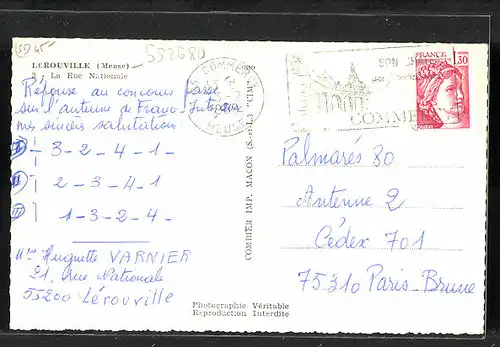 557680
LEROUVILLE (Meuse)
La Rue Nationale
Réponse au concours passe
sur l'autumne de France-Inter avec
nos succès salutations
I) 3-2-4-1-
II) 2-3-4-1
III) 1-3-2-4-
Mme Huguette VARNIER
21, Rue Nationale
55200 Lérouville
Photographie Véritable
Reproduction Interdite
COMBIER IMP. MACON (S.-et-L.) "CIM"
COMMERCY
MEUSE
SON
COMME
FRANCE
1,30
Palmarés 80
Antenne 2
Cédex 701
75310 Paris-Brune